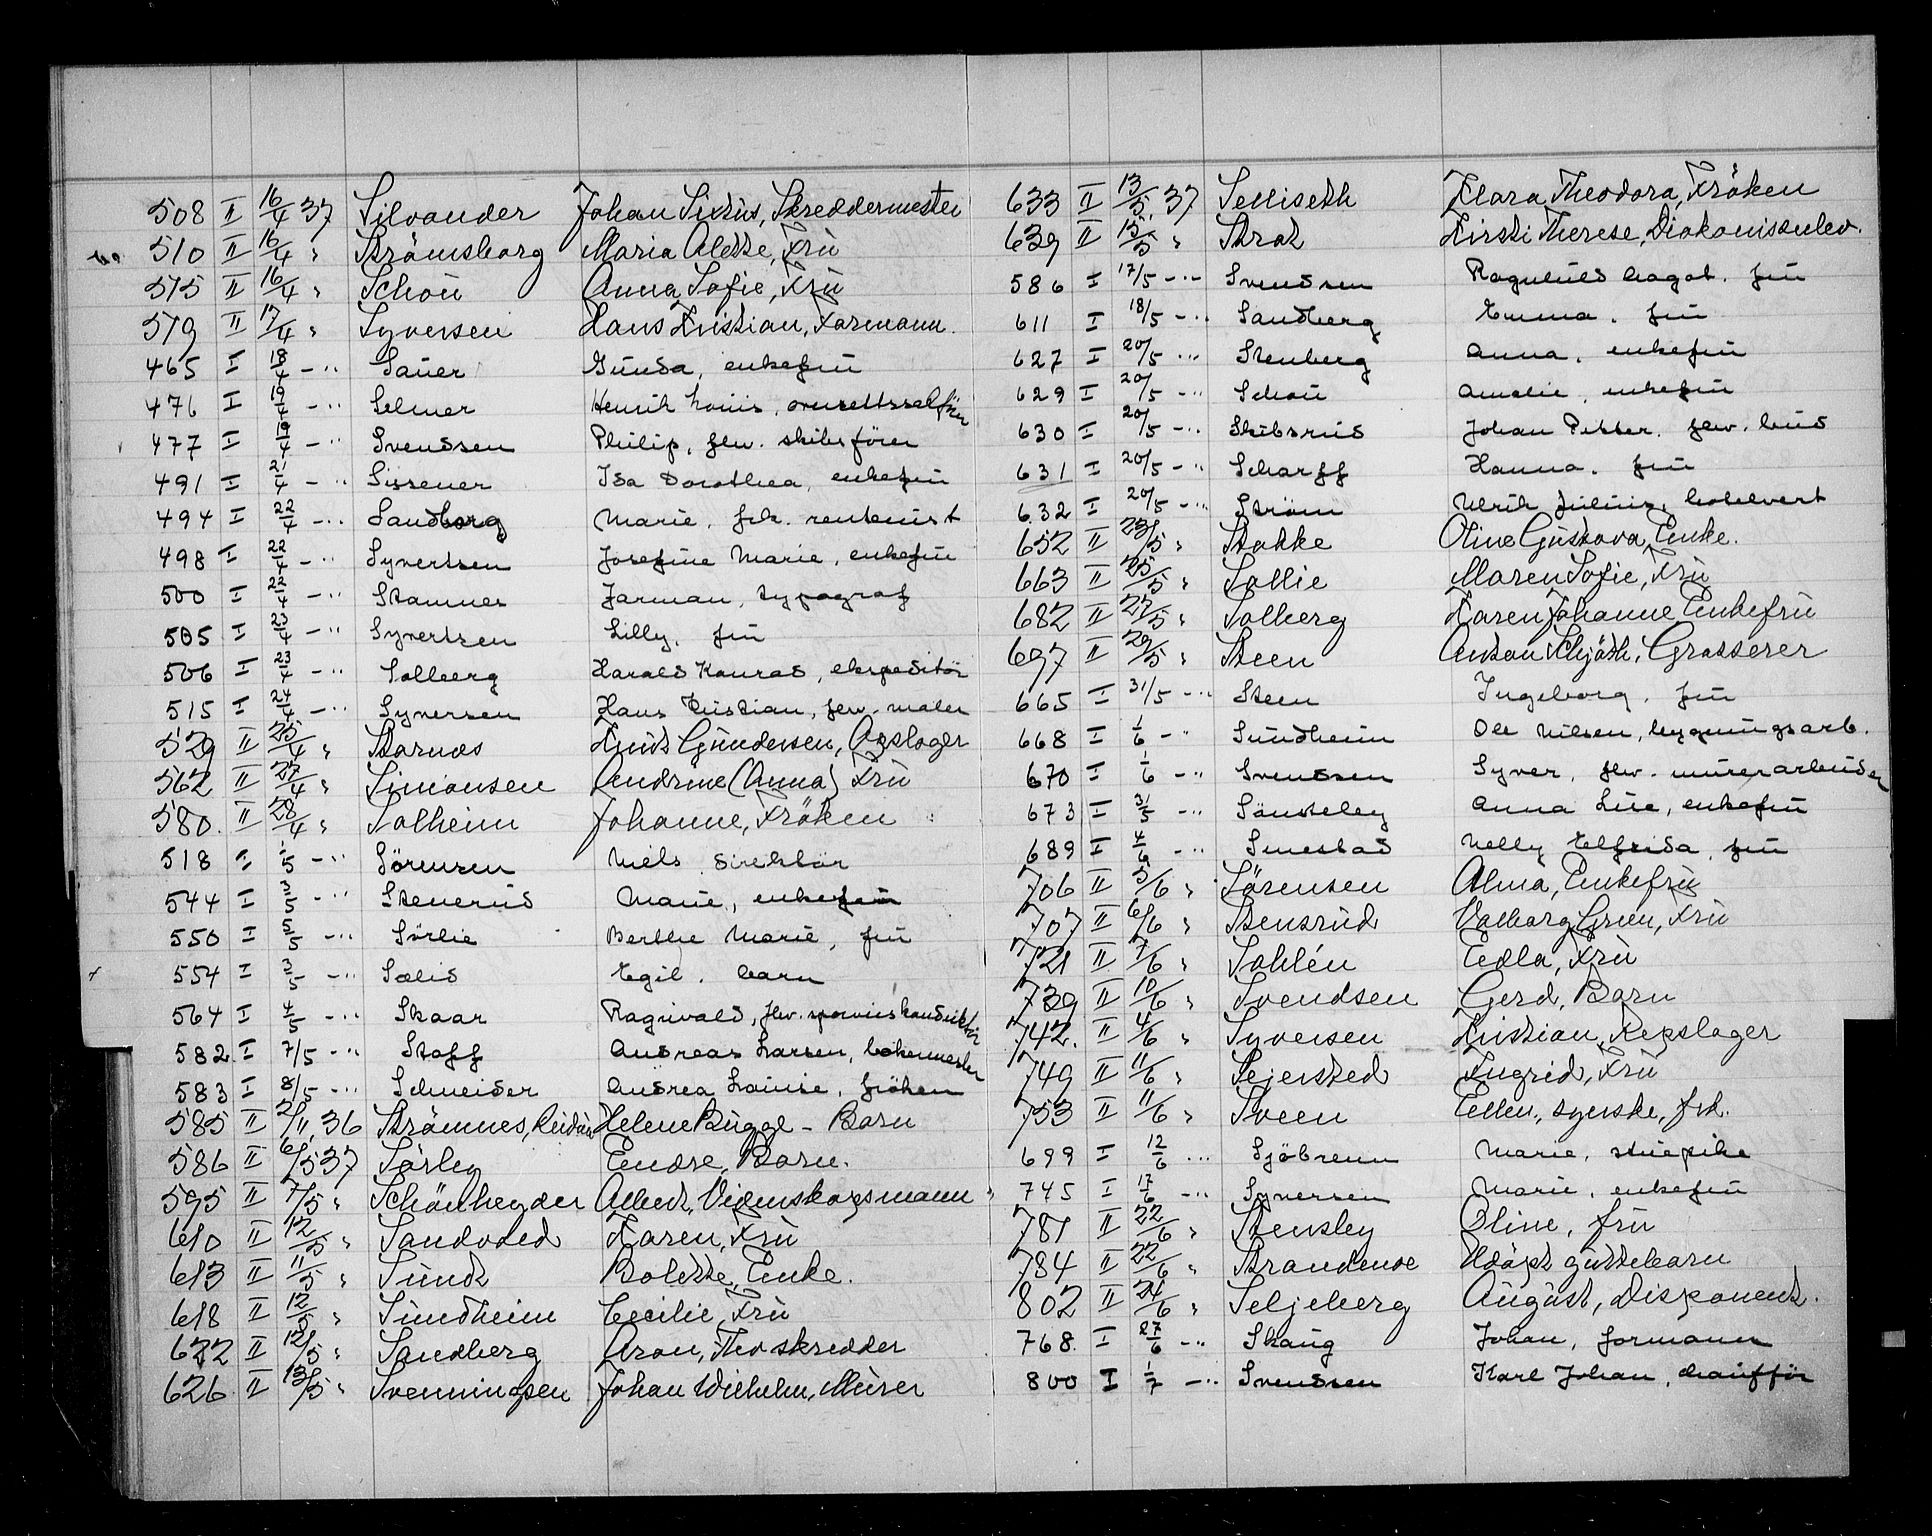 508 II 16/4 37 Silvander Johan Sixtus, Skreddermester
510 II 16/4 " Strömsborg Maria Alette, Fru
515 II 16/4 " Schou Anna Sofie, Fru
519 II 17/4 " Syversen Hans Kristian, Formann.
465 I 18/4 - " Sauer Gunda, enkefru
476 I 19/4 - " Selmer Henrik Louis, overrettssakförer
477 I 19/4 - " Svendsen Philip, fhv. skibsförer
491 I 21/4 - " Sissener Ida Dorothea, enkefru
494 I 22/4 - " Sandborg Marie, frk. rentenist
498 I 22/4 - " Syvertsen Josefine Marie, enkefru
500 I 22/4 - " Stamnes Jarman, typograf
505 I 23/4 - " Syvertsen Lilly, fru
506 I 23/4 - " Solberg Harald Konrad, ekspeditör
515 I 24/4 - " Syversen Hans Kristian, fhv. maler
529 II 25/4 " Starnes Knut Gundersen, Opslager
562 II 27/4 " Simonsen Andrine (Anna) Fru
580. II 28/4 " Solheim Johanne, Fröken
518 I 1/5 - " Sörensen Niels direktör
544 I 3/5 - " Stenerud Marie, enkefru
550 I 5/5 - " Sörlie Berthe Marie, fru
554 I 3/5 - " Solid Egil. barn
564 I 4/5 - " Skaar Ragnvald, fhv. sporveiskonduktör
582. I 7/5 - " Stoff Andreas Larsen, bakermester
583 I 8/5 - " Schneider Andrea Louise, fröken
585 II 2/11 36 Strömnes, Reidun Helene Bugge - Barn
586 II 6/5 37 Sörby Endre, Barn.
595 II 7/5 " Schönheyder Albert, Videnskapsmann
610 II 12/5 " Sandvold Karen, Fru
613 II 11/5 " Sundt Bolette, Enke.
618 II 12/5 " Sundheim Cecilie, Fru
622 II 12/5 " Sandberg Aron, Theo skredder
626 II 13/5 " Svenningsen Johan Wilhelm, Murer
633 II 13/5 37 Selliseth Klara Theodora, Fröken
639 II 15/5 " Strat Kirsti Therese, Diakonisseelev.
586 I 17/5 - " Svendsen Ragnhild Dagot. fru
611 I 18/5 - " Sandberg Emma. fru
627 I 20/5 - " Stenberg Anna, enkefru
629 I 20/5 - " Schou Amalie, enkefru
630 I 20/5 - " Skibsrud Johan Petter. fhv. bud
631 I 20/5 - " Scharff Hanna. fru
632 I 20/5 - " Ström Ulrik Julius, hotelvert
652 II 23/5 " Stokke Oline Gustava, Enke.
663 II 25/5 " Sollie Maren Sofie, Fru
682 II 27/5 " Solberg Karen Johanne Enkefru
697 II 29/5 " Steen Anton Schjöth, Grosserer
665 I 31/5 - " Steen Ingeborg, fru
668 I 1/6 - " Sundheim Ole Nilsen, bygningsarb.
670 I 1/6 - " Svendsen Syver, fhv. murerarbeider
673 I 31/5 - " Sönsteby Anna Lise, enkefru
689 I 4/6 - " Smestad Nelly Elfrida, fru
706 II 5/6 " Sörensen Alma, Enkefru
707 II 6/6 " Stensrud Valborg Green, Fru
721 II 7/6 " Sohlén Edla, Fru
739 II 10/6 " Svendsen Gerd, Barn
742. II 4/6 " Syversen Kristian, Repslager
749 II 11/6 " Sejersted Ingrid, Fru
753 II 11/6 " Sveen Ellen, syerske, frk.
699 I 12/6 - " Sjöbrenn Marie, stuepike
745 I 17/6 - " Syversen Marie, enkefru
781 II 22/6 " Stensby Oline, fru
784 II 22/6 " Strandenæs Udöpt guttebarn
802 II 24/6 " Seljeberg August, Disponent.
768. I 27/6 - " Skaug Johan, formann
800 I 1/7 - " Svendsen Karl Johan, chaufför